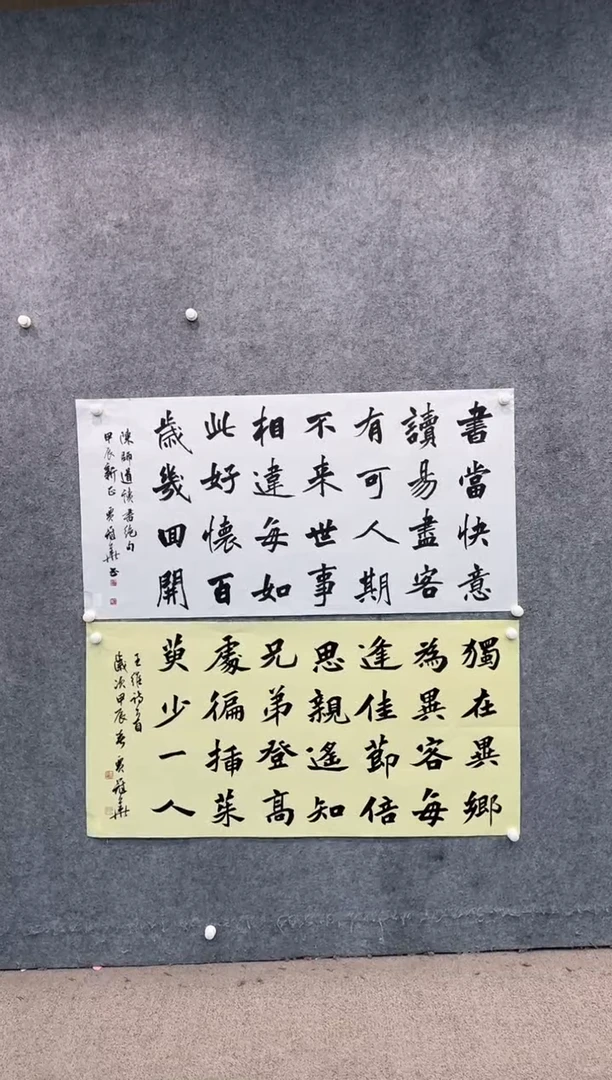 書當快意
讀易盡客
有可人期
不来世事
相違每如
此好懷百
歲幾回開
陳師道讀書絕句
甲辰新正
獨在異鄉
為異客每
逢佳節倍
思親遙知
兄弟登高
處徧插茱
萸少一人
王維詩一首
歲次甲辰春